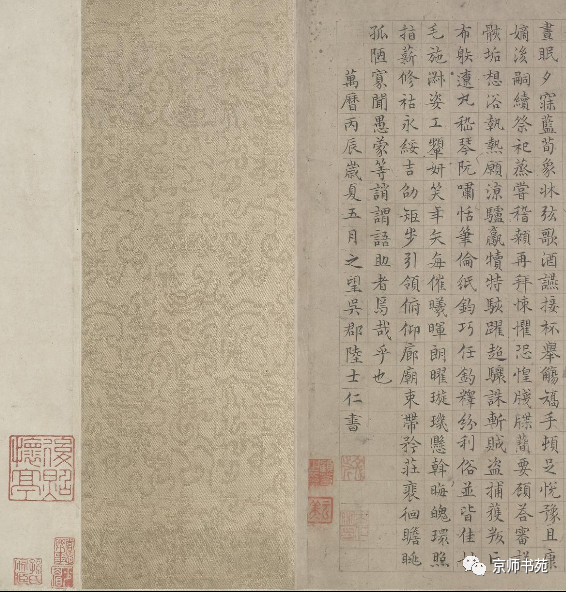 晝眠夕寐藍荀象牀弦歌酒讌接杯舉觴矯手頓足悅豫且康
嫡後嗣續祭祀蒸嘗稽顙再拜悚懼恐惶牋牒簡要顧答審詳
骸垢想浴執熱願涼驢騾犢特駭躍超驤誅斬賊盜捕獲叛亡
布射遼丸嵇琴阮嘯恬筆倫紙鈞巧任釣釋紛利俗並皆佳妙
毛施淑姿工顰妍笑年矢每催曦暉朗曜璇璣懸斡晦魄環照
指薪修祜永綏吉劭矩步引領俯仰廊廟束帶矜莊裵徊瞻眺
孤陋寡聞愚蒙等誚謂語助者焉哉乎也
萬曆丙辰歲夏五月之望吳郡陸士仁書
京师书苑